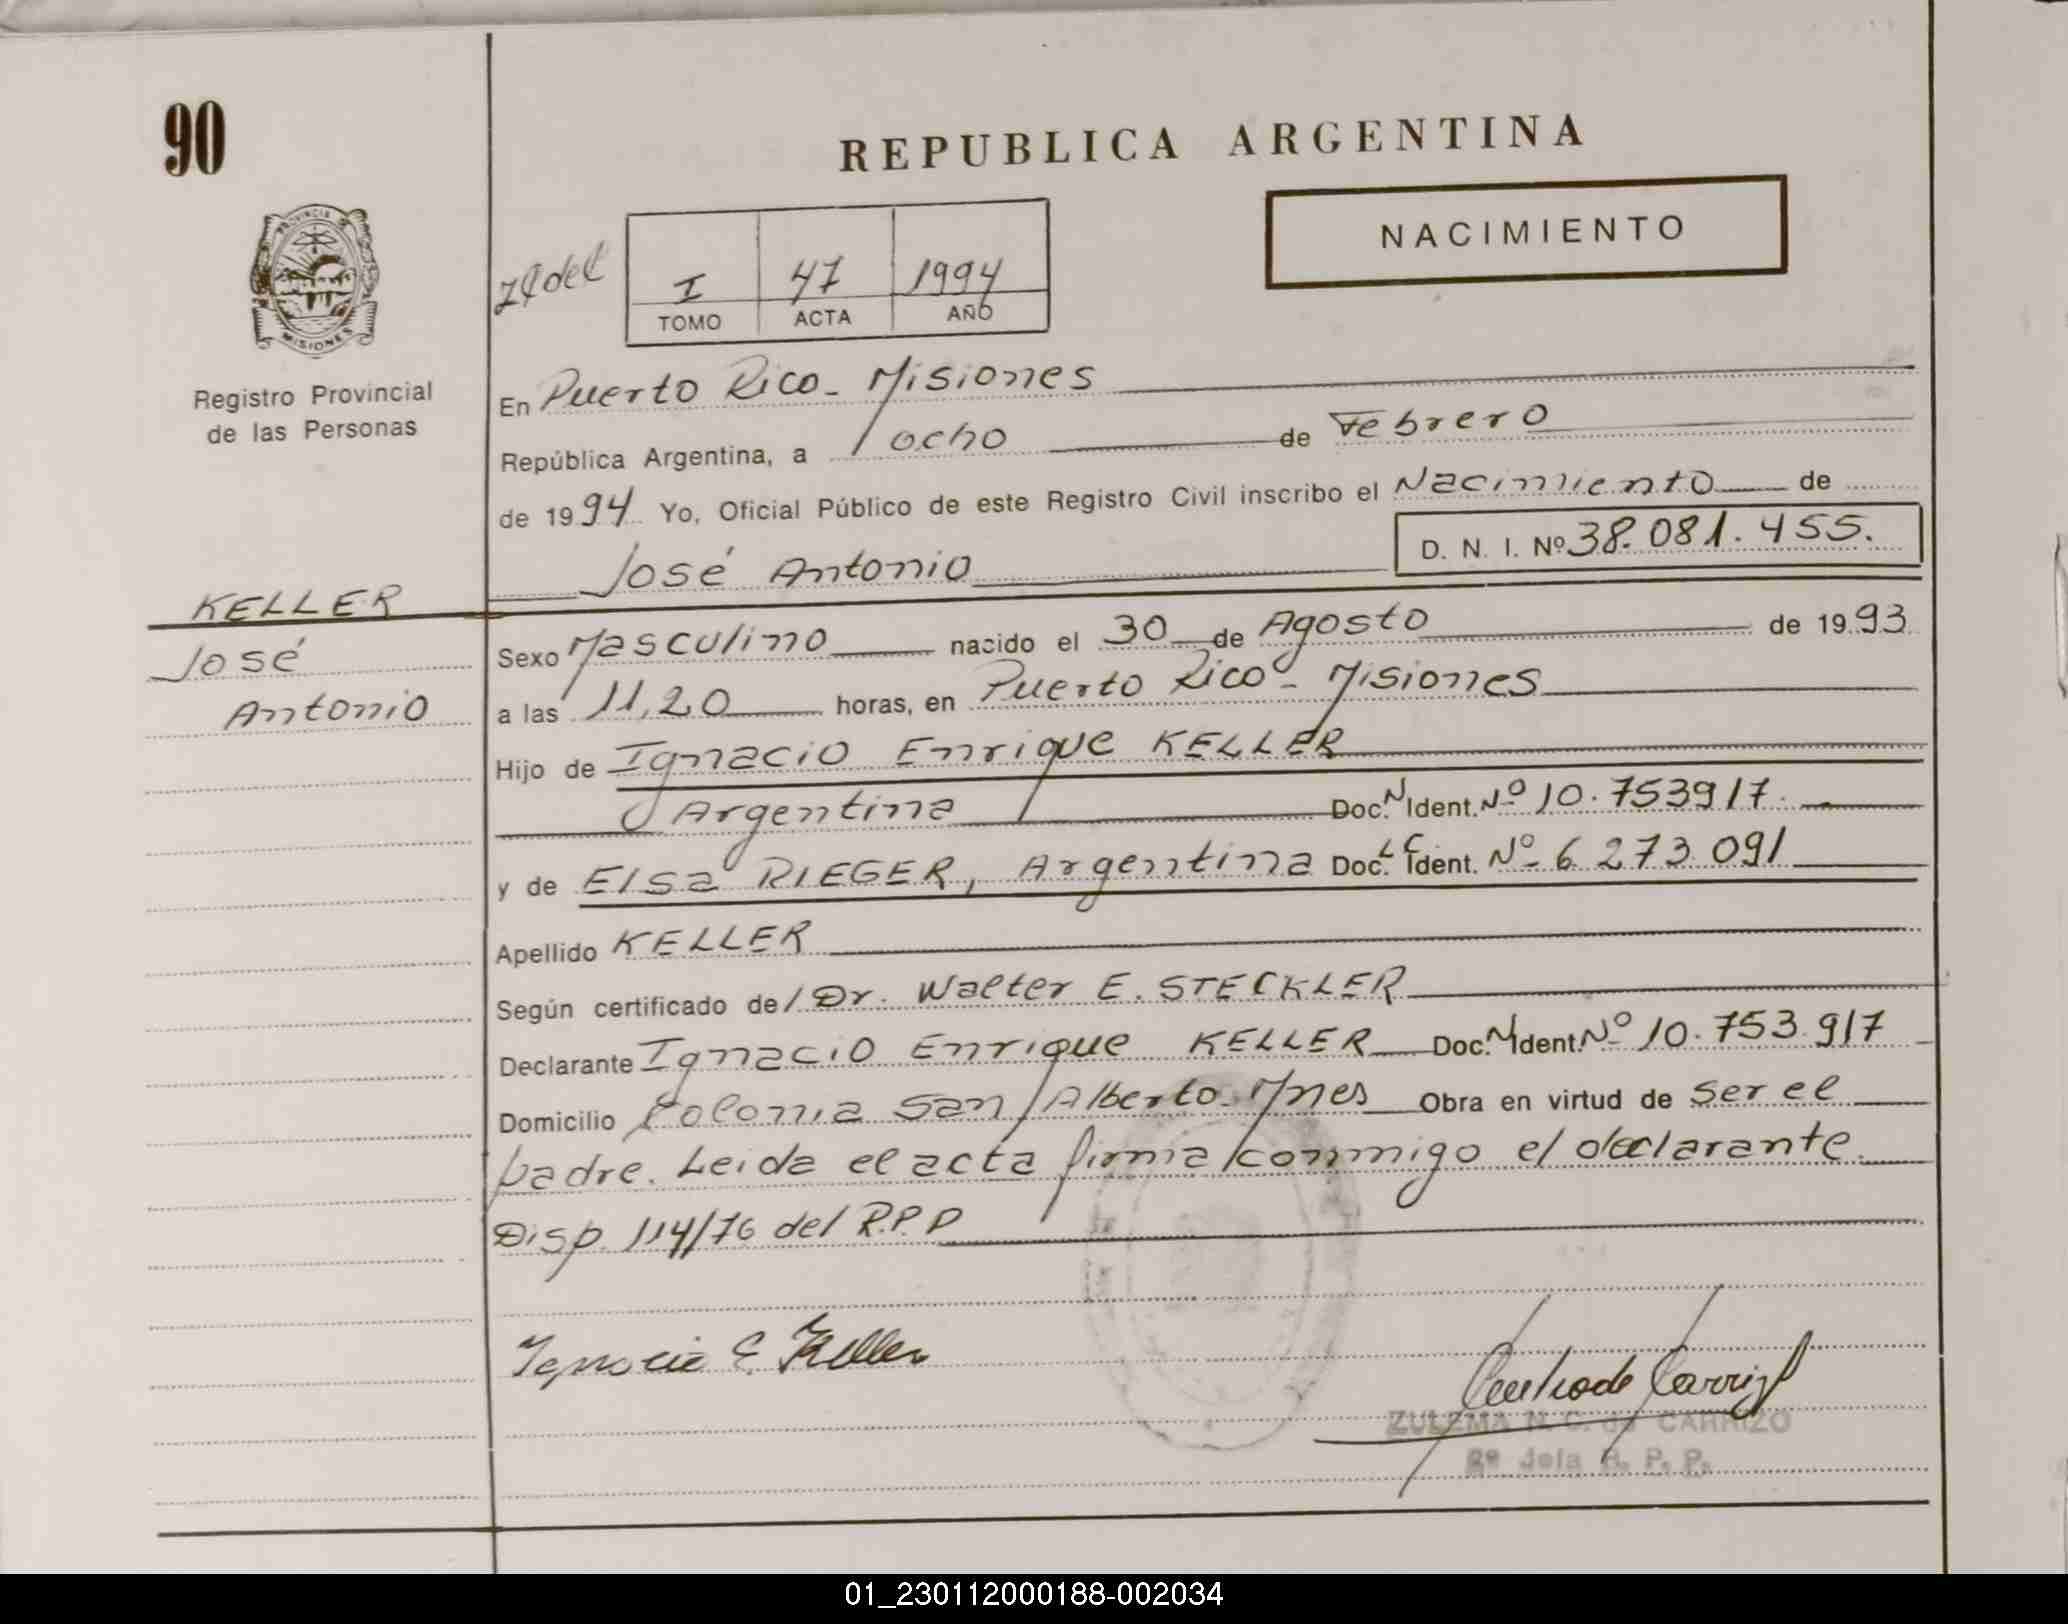 90
REPUBLICA ARGENTINA
NACIMIENTO
del
I 47 1994
TOMO ACTA AÑO
PROVINCIA DE
MISIONES
Registro Provincial
de las Personas
KELLER
José
Antonio
En Puerto Rico - Misiones
República Argentina, a ocho de Febrero
de 1994 Yo, Oficial Público de este Registro Civil inscribo el Nacimiento de
José Antonio D. N. I. Nº 38.081.455.
Sexo Masculino nacido el 30 de Agosto de 1993
a las 11,20 horas, en Puerto Rico - Misiones
Hijo de Ignacio Enrique KELLER
Argentina Doc. N Ident. Nº 10.753917.
y de Elsa RIEGER, Argentina Doc. LC Ident. Nº 6.273.091
Apellido KELLER
Según certificado de / Dr. Walter E. STECKLER
Declarante Ignacio Enrique KELLER Doc. N Ident. Nº 10.753.917
Domicilio Colonia San Alberto - Mnes Obra en virtud de ser el
padre. Leida el acta firma conmigo el declarante.
Disp. 114/76 del R.P.P
Ignacio E. Keller
ZULEMA N. C. de CARRIZO
R. P. P.
01_230112000188-002034